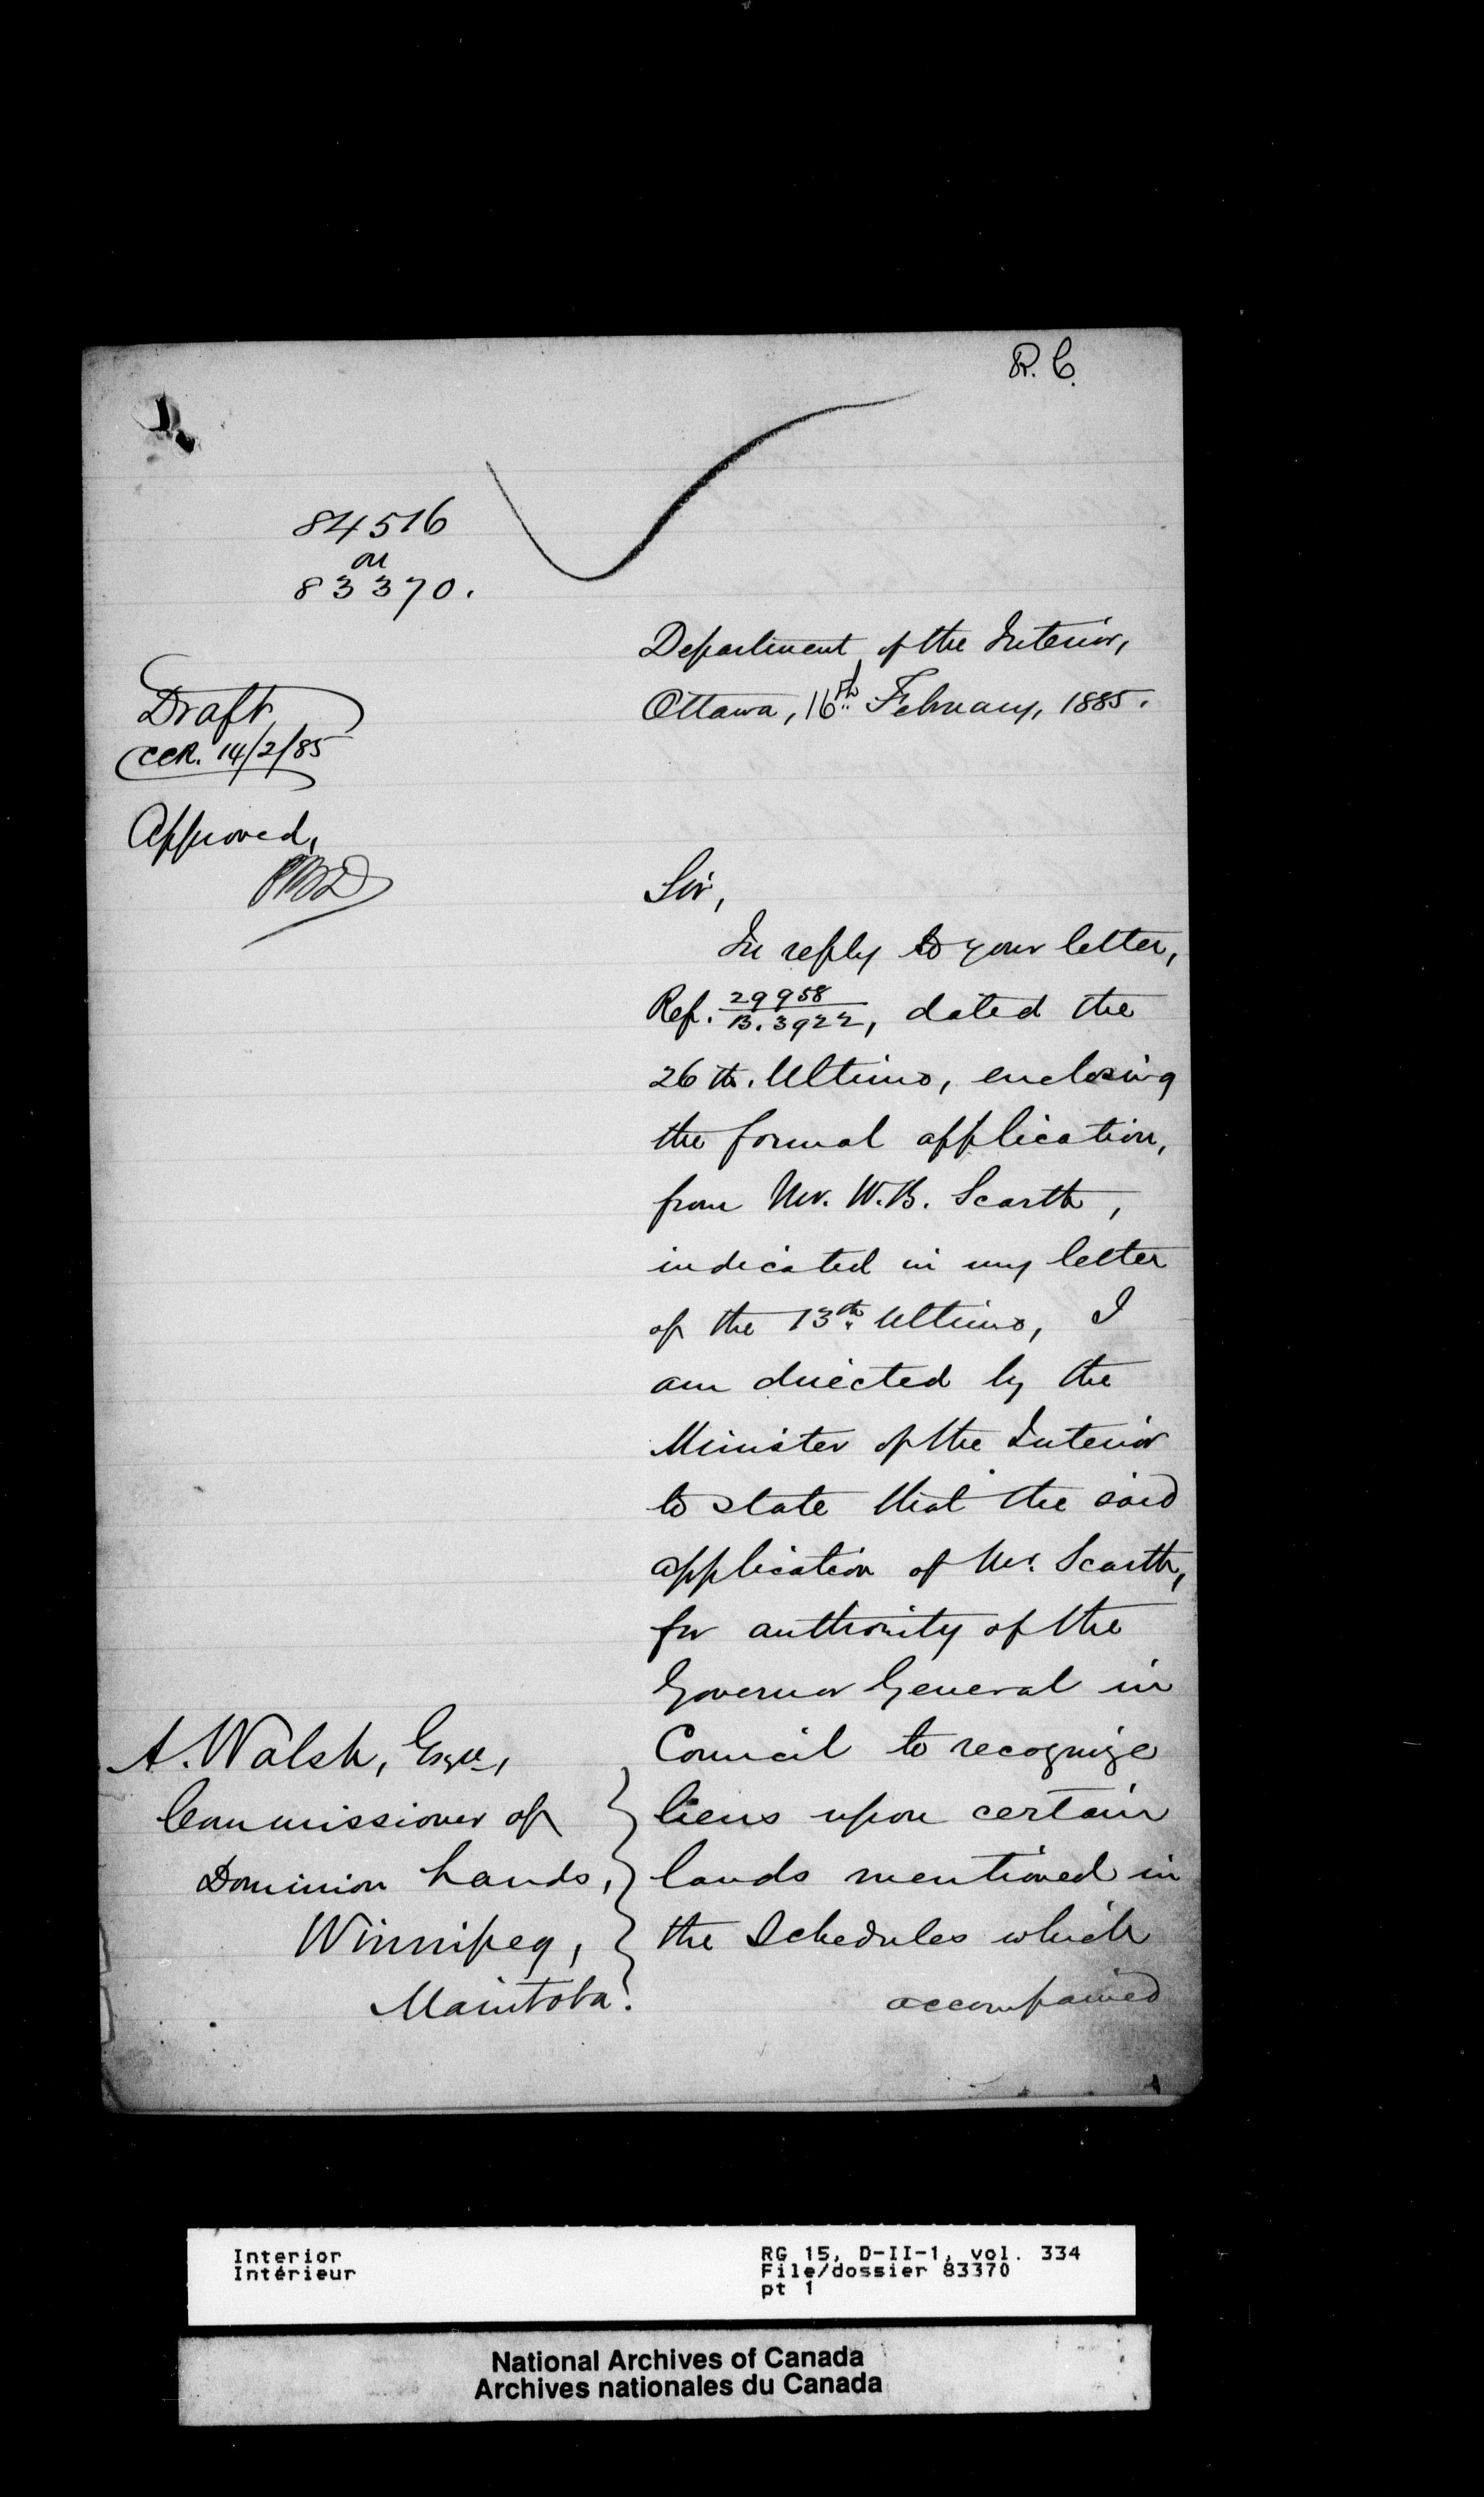 R. C.
84516
on
83370.
Department of the Interior,
Ottawa, 16th February, 1885.
Draft
CCR. 14/2/85
Approved,
Sir,
In reply to your letter,
Ref. 29958/B.3922, dated the
26th. Ultimo, enclosing
the formal application,
from Mr. W.B. Scarth,
indicated in my letter
of the 13th Ultimo, I
am directed by the
Minister of the Interior
to state that the said
application of Mr. Scarth,
for authority of the
Governor General in
Council to recognize
liens upon certain
lands mentioned in
the Schedules which
accompanied
A. Walsh, Esqre,
Commissioner of
Dominion Lands,
Winnipeg,
Manitoba.
Interior
Intérieur
RG 15, D-II-1, vol. 334
File/dossier 83370
pt 1
National Archives of Canada
Archives nationales du Canada